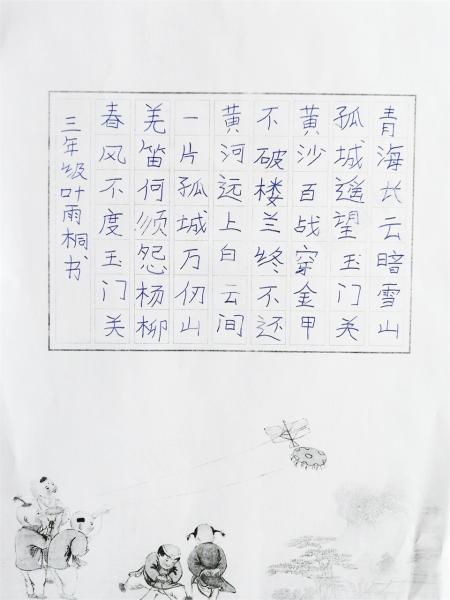 青海长云暗雪山
孤城遥望玉门关
黄沙百战穿金甲
不破楼兰终不还
黄河远上白云间
一片孤城万仞山
羌笛何须怨杨柳
春风不度玉门关
三年级叶雨桐书